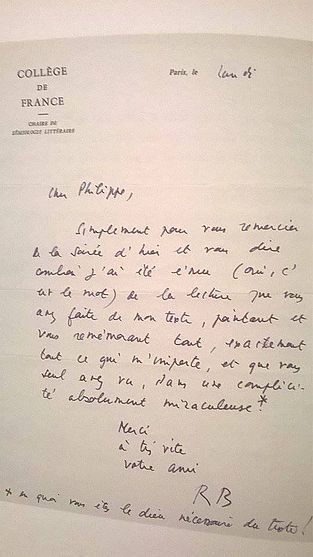 COLLÈGE
DE
FRANCE
CHAIRE DE
SÉMIOLOGIE LITTÉRAIRE
Paris, le lundi
Cher Philippe,
Simplement pour vous remercier
de la soirée d'hier et vous dire
combien j'ai été ému (oui, c'
est le mot) de la lecture que vous
avez faite de mon texte, pointant et
vous remémorant tout, exactement
tout ce qui m'importe, et que vous
seul avez vu, dans une complici-
té absolument miraculeuse*!
Merci
à très vite
votre ami
RB
* en quoi vous êtes le dieu nécessaire du texte!